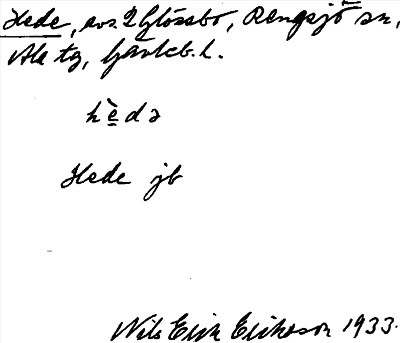 Hede, avs. Glössbo, Rengsjö sn,
Ala tg, Gävleb. l.
hèdə
Hede jb
Nils Erik Erikson 1933.